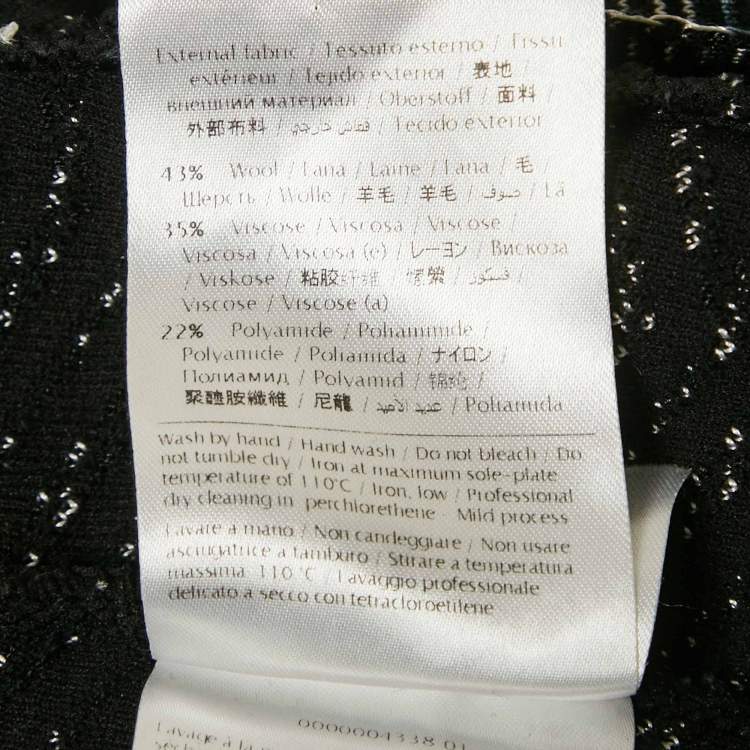 External fabric / Tessuto esterno / Tissu
extérieur / Tejido exterior / 表地 /
внешний материал / Oberstoff / 面料 /
外部布料 / قماش خارجي / Tecido exterior
43% Wool / Lana / Laine / Lana / 毛 /
Шерсть / Wolle / 羊毛 / 羊毛 / صوف / Lã
35% Viscose / Viscosa / Viscose /
Viscosa / Viscosa (e) / レーヨン / Вискоза
/ Viskose / 粘胶纤维 / 嫘縈 / فسكوز /
Viscose / Viscose (a)
22% Polyamide / Poliammide /
Polyamide / Poliamida / ナイロン /
Полиамид / Polyamid / 锦纶 /
聚醯胺纖維 / 尼龍 / / Poliamida
Wash by hand / Hand wash / Do not bleach / Do
not tumble dry / Iron at maximum sole-plate
temperature of 110°C / Iron, low / Professional
dry cleaning in perchlorethene - Mild process
Lavare a mano / Non candeggiare / Non usare
asciugatrice a tamburo / Stirare a temperatura
massima 110 °C / Lavaggio professionale
delicato a secco con tetracloroetilene
0000004338 01
Lavage à la